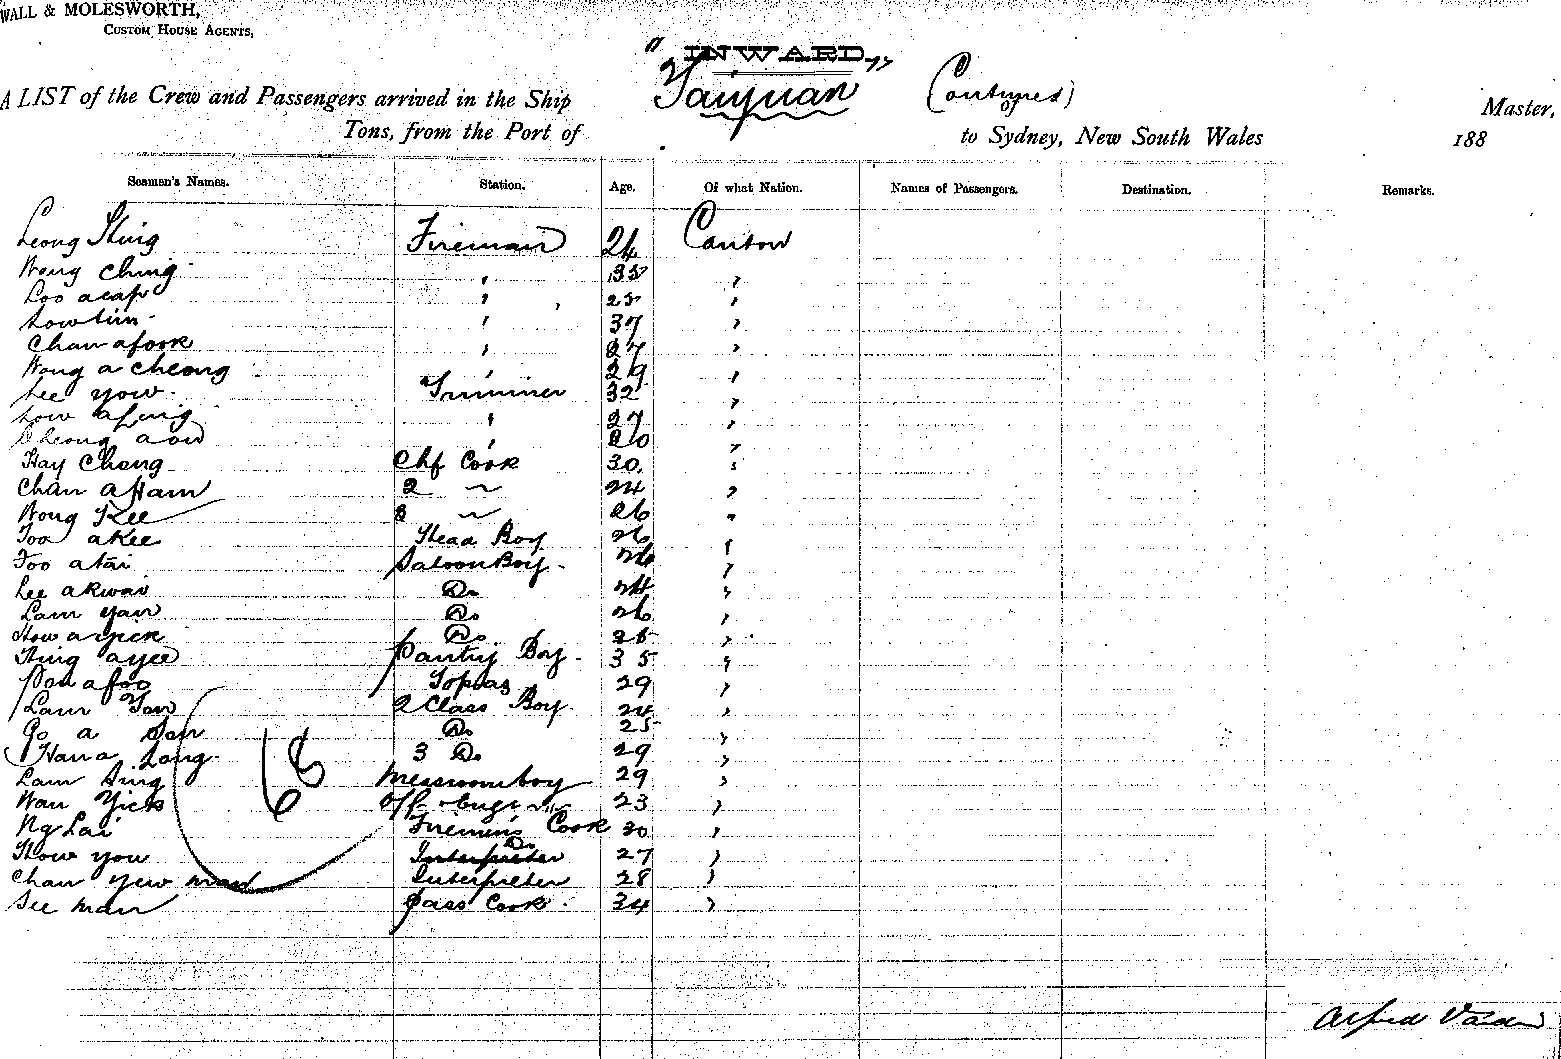 WALL & MOLESWORTH,
CUSTOM HOUSE AGENTS,
INWARD,
A LIST of the Crew and Passengers arrived in the Ship "Taiyuan" (Continued) Master,
Tons, from the Port of to Sydney, New South Wales 188
Seamen's Names. Station. Age. Of what Nation. Names of Passengers. Destination. Remarks.
Leong Shing Fireman 24 Canton
Wong Ching " 35 "
Loo acap " 25 "
Low tim " 37 "
Chan afook " 27 "
Wong a Cheong " 29 "
Lee yow Trimmer 32 "
Low afung " 27 "
Cheong aon " 20 "
Hay Chong Chf Cook 30 "
Chan aHam 2 " 24 "
Wong Kee 3 " 26 "
Foo akee Head Boy 26 "
Foo atai Saloon Boy 26 "
Lee akwai Do 24 "
Lam yan Do 26 "
How ayick Do 25 "
Hing ayee Pantry Boy 35 "
Pon afoo Topas 29 "
Lam Yan 2 Class Boy 24 "
Go a San Do 25 "
Han a Lang 3 Do 29 "
Lam Sing Messroom boy 29 "
Wan Yick Off 23 "
Ng Lai Firemen's Cook 30 "
How you Interpreter Do 27 "
Chan yew man Interpreter 28 "
See man Pass Cook 34 "
Alfred